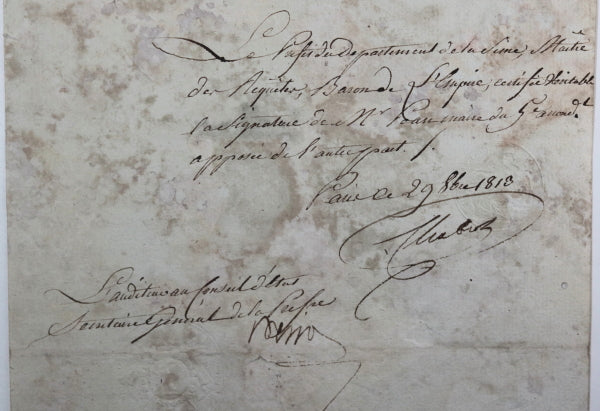 Le Préfet du département de la Seine, Maître
des Requêtes, Baron de l'Empire, certifie véritable
la signature de Mr maire du 5e arrondt
apposée de l'autre part.
Paris ce 29 8bre 1813
Chabrol
L'auditeur au Conseil d'état
Secrétaire Général de la Préfre